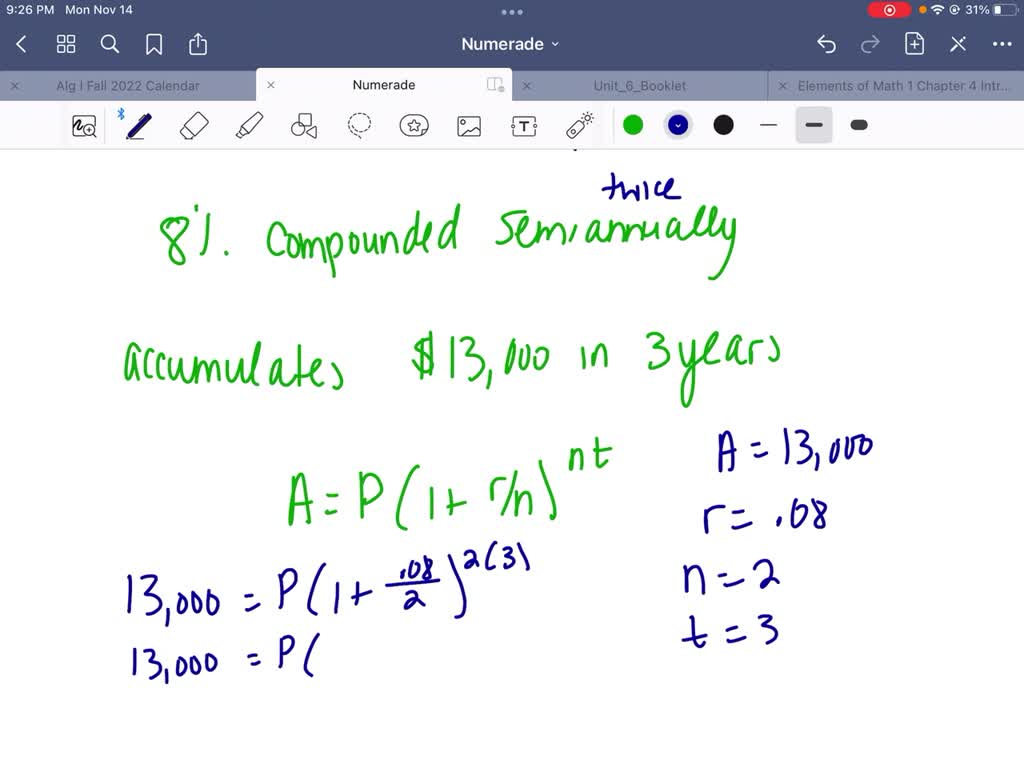 9:26 PM Mon Nov 14
31%
Numerade
Alg I Fall 2022 Calendar
Numerade
Unit_6_Booklet
Elements of Math 1 Chapter 4 Intr...
twice
8%. Compounded Semiannually
accumulates $13,000 in 3 years
A = P(1 + r/n)^nt
A = 13,000
r = .08
13,000 = P(1 + .08/2)^2(3)
n = 2
t = 3
13,000 = P(